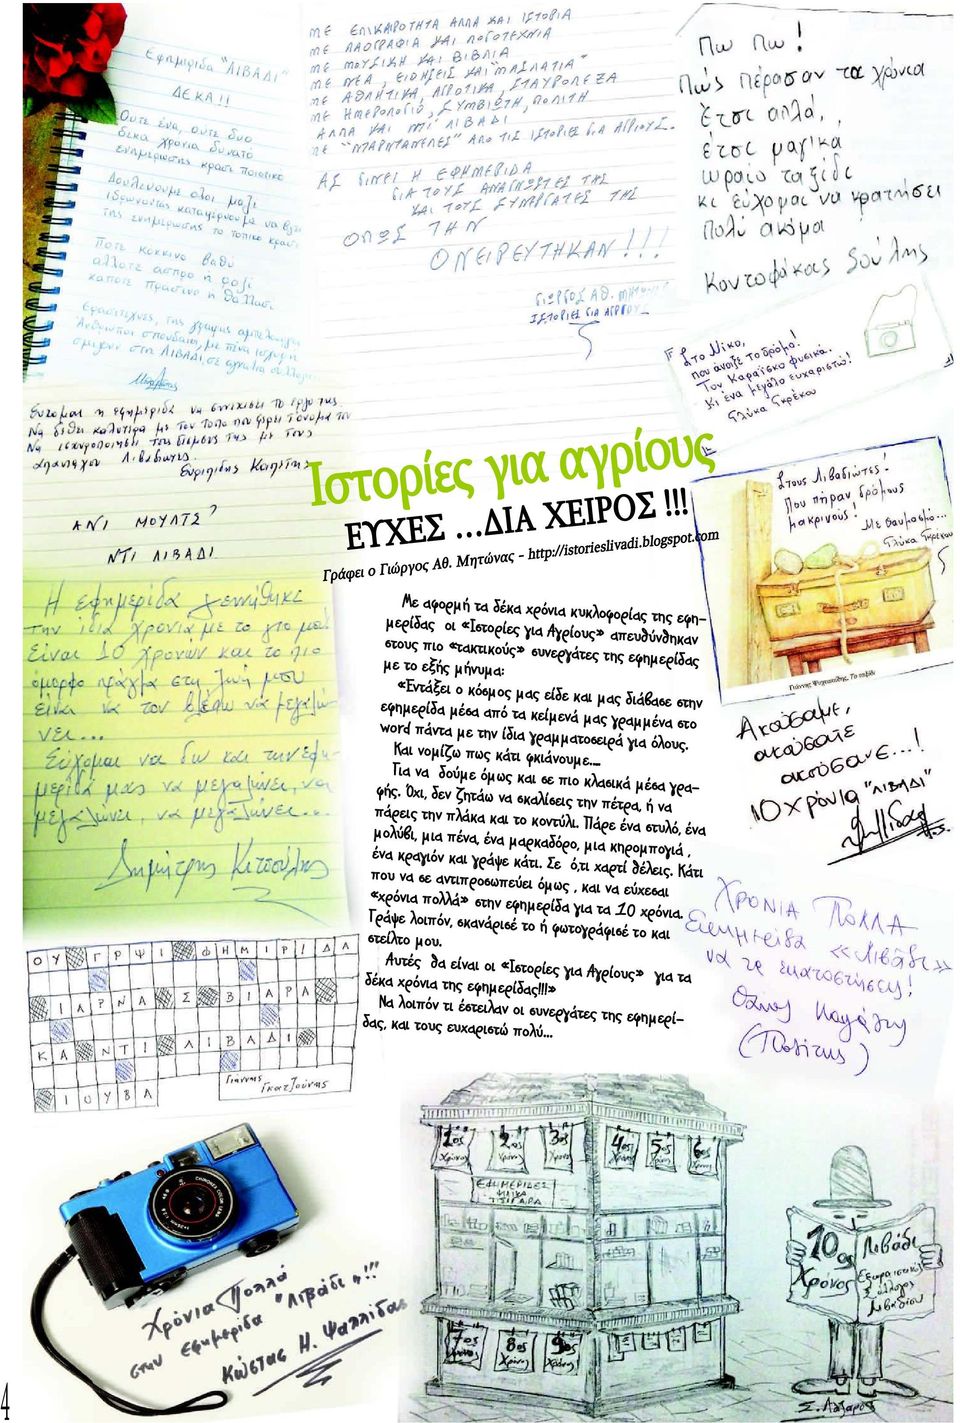 Εφημερίδα "ΛΙΒΑΔΙ"
ΔΕΚΑ!!
Ούτε ένα, ούτε δυο
δέκα χρόνια δυνατό
ενημέρωσης κρασί ποιοτικό
Δουλεύουμε όλοι μαζί
ιδρώνοντας καταφέρνουμε να βγει
της ενημέρωσης το τοπικό κρασί
Πότε κόκκινο βαθύ
άλλοτε άσπρο ή ροζί
κάποτε πράσινο ή θαλασσί
Ερασιτέχνες, της γραφής αμπελουργοί
Άνθρωποι σπουδαίοι, με πένα ισχυρή
ΜΕ ΕΠΙΚΑΙΡΟΤΗΤΑ ΑΛΛΑ ΚΑΙ ΙΣΤΟΡΙΑ
ΜΕ ΛΑΟΓΡΑΦΙΑ ΚΑΙ ΛΟΓΟΤΕΧΝΙΑ
ΜΕ ΜΟΥΣΙΚΗ ΚΑΙ ΒΙΒΛΙΑ
ΜΕ ΝΕΑ, ΕΙΔΗΣΕΙΣ ΚΑΙ "ΜΑΣΛΑΤΙΑ"
ΜΕ ΑΘΛΗΤΙΚΑ, ΑΓΡΟΤΙΚΑ, ΣΤΑΥΡΟΛΕΞΑ
ΜΕ ΗΜΕΡΟΛΟΓΙΟ, ΣΥΜΒΙΩΤΗ, ΠΟΛΙΤΗ
ΑΛΛΑ ΚΑΙ ΝΤΙ ΛΙΒΑΔΙ
ΜΕ "ΝΤΑΡΝΤΑΝΕΛΕΣ" ΑΠΟ ΤΙΣ ΙΣΤΟΡΙΕΣ ΓΙΑ ΑΓΡΙΟΥΣ.
ΑΣ ΓΙΝΕΙ Η ΕΦΗΜΕΡΙΔΑ
ΓΙΑ ΤΟΥΣ ΑΝΑΓΝΩΣΤΕΣ ΤΗΣ
ΚΑΙ ΤΟΥΣ ΣΥΝΕΡΓΑΤΕΣ ΤΗΣ
ΟΠΩΣ ΤΗΝ
ΟΝΕΙΡΕΥΤΗΚΑΝ!!!
ΓΙΩΡΓΟΣ ΑΘ. ΜΗΤΩΝΑΣ
ΙΣΤΟΡΙΕΣ ΓΙΑ ΑΓΡΙΟΥΣ
Πω Πω!
Πώς πέρασαν τα χρόνια
έτσι απλά,
έτσι μαγικά
ωραίο ταξίδι
κι εύχομαι να κρατήσει
πολύ ακόμα
Κοντοφάκας Σούλης
Στο Νίκο,
που άνοιξε το δρόμο!
Τον Καραΐσκο φυσικά.
Κι ένα μεγάλο ευχαριστώ!
Γλύκα Γκρέκου
Εύχομαι η εφημερίδα να συνεχίσει το έργο της
Να δεθεί καλύτερα με τον τόπο που φέρει τ'όνομά του
Να ισχυροποιήσει τους δεσμούς της με τους
απανταχού Λιβαδιώτες.
Ευριπίδης Καπέτης
ΑΝΙ ΜΟΥΛΤΣ?
ΝΤΙ ΛΙΒΑΔΙ
Ιστορίες για αγρίους
ΕΥΧΕΣ ...ΔΙΑ ΧΕΙΡΟΣ !!!
Γράφει ο Γιώργος Αθ. Μητώνας - http://istorieslivadi.blogspot.com
Στους Λιβαδιώτες!
Που πήραν δρόμους
μακρινούς!
Με θαυμασμό...
Γλύκα Γκρέκου
Γιάννης Ψυχοπαίδης, Το ταξίδι
Η εφημερίδα γεννήθηκε
την ίδια χρονιά με το γιο μου!
Είναι 10 χρονών και το πιο
όμορφο πράγμα στη ζωή μου
είναι να τον βλέπω να μεγαλώ-
νει...
Εύχομαι να δω και την εφη-
μερίδα μας να μεγαλώνει, να
μεγαλώνει, να μεγαλώνει...
Δημήτρης Κιτσούλης
Με αφορμή τα δέκα χρόνια κυκλοφορίας της εφη-
μερίδας οι «Ιστορίες για Αγρίους» απευθύνθηκαν
στους πιο «τακτικούς» συνεργάτες της εφημερίδας
με το εξής μήνυμα:
«Εντάξει ο κόσμος μας είδε και μας διάβασε στην
εφημερίδα μέσα από τα κείμενά μας γραμμένα στο
word πάντα με την ίδια γραμματοσειρά για όλους.
Και νομίζω πως κάτι φκιάνουμε...
Για να δούμε όμως και σε πιο κλασικά μέσα γρα-
φής. Όχι, δεν ζητάω να σκαλίσεις την πέτρα, ή να
πάρεις την πλάκα και το κοντύλι. Πάρε ένα στυλό, ένα
μολύβι, μια πένα, ένα μαρκαδόρο, μια κηρομπογιά ,
ένα κραγιόν και γράψε κάτι. Σε ό,τι χαρτί θέλεις. Κάτι
που να σε αντιπροσωπεύει όμως , και να εύχεσαι
«χρόνια πολλά» στην εφημερίδα για τα 10 χρόνια.
Γράψε λοιπόν, σκανάρισέ το ή φωτογράφισέ το και
στείλτο μου.
Αυτές θα είναι οι «Ιστορίες για Αγρίους» για τα
δέκα χρόνια της εφημερίδας!!!»
Να λοιπόν τι έστειλαν οι συνεργάτες της εφημερί-
δας, και τους ευχαριστώ πολύ...
Ακούσαμε,
ακούσατε
ακούσανε...!
10 χρόνια "ΛΙΒΑΔΙ"
ΧΡΟΝΙΑ ΠΟΛΛΑ
Εφημερίδα «Λιβάδι»
να τα εκατοστήσεις!
(Πολίτης)
ΟΥ ΓΡΨΙ ΦΗΜΙΡΙΔΑ
ΙΑΡΝΑ Σ ΒΙΑΡΑ
ΚΑ ΝΤΙ ΛΙΒΑΔΙ
ΙΟΥΒΑ
Γιάννης
Γκατζούνης
Χρόνια Πολλά
στην εφημερίδα "Λιβάδι"!!!
Κώστας Η. Ψαλλίδας
1ος Χρόνος
2ος Χρόνος
3ος Χρόνος
4ος Χρόνος
5ος Χρόνος
6ος Χρόνος
ΕΦΗΜΕΡΙΔΕΣ
ΨΙΛΙΚΑ
ΤΣΙΓΑΡΑ
7ος Χρόνος
8ος Χρόνος
9ος Χρόνος
10ος Χρόνος
Λιβάδι
Εξωραϊστικός
Σύλλογος
Λιβαδίου
4